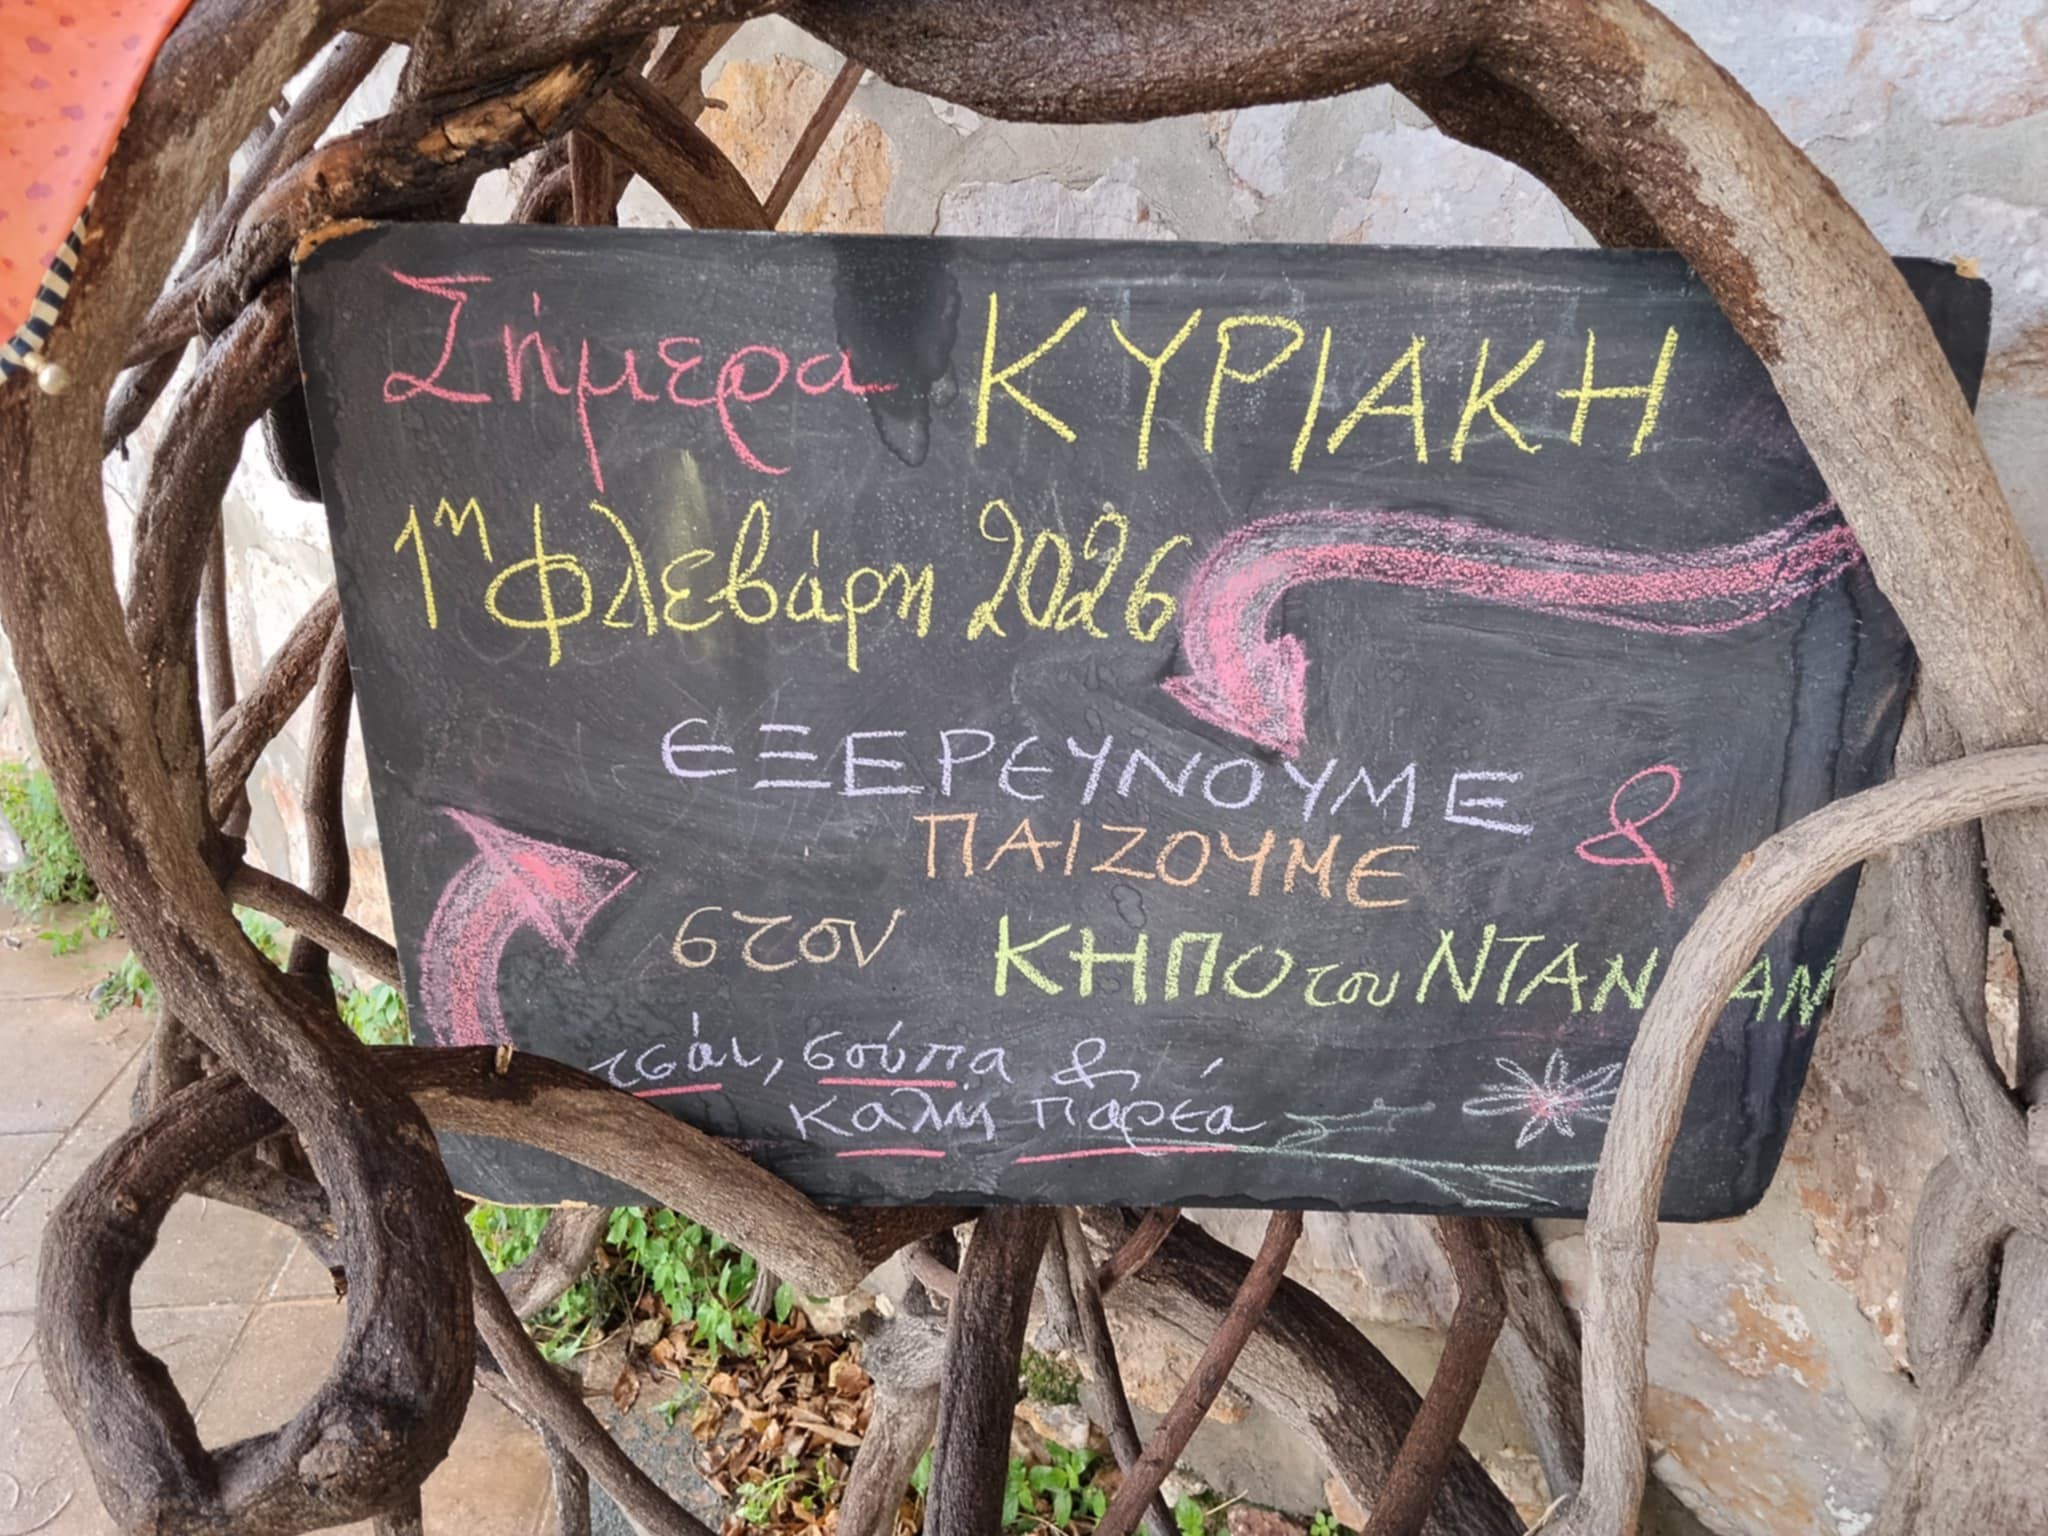 Σήμερα ΚΥΡΙΑΚΗ
1η Φλεβάρη 2026
ΕΞΕΡΕΥΝΟΥΜΕ &
ΠΑΙΖΟΥΜΕ
στον ΚΗΠΟ του
τσάι, σούπα &
καλή παρέα